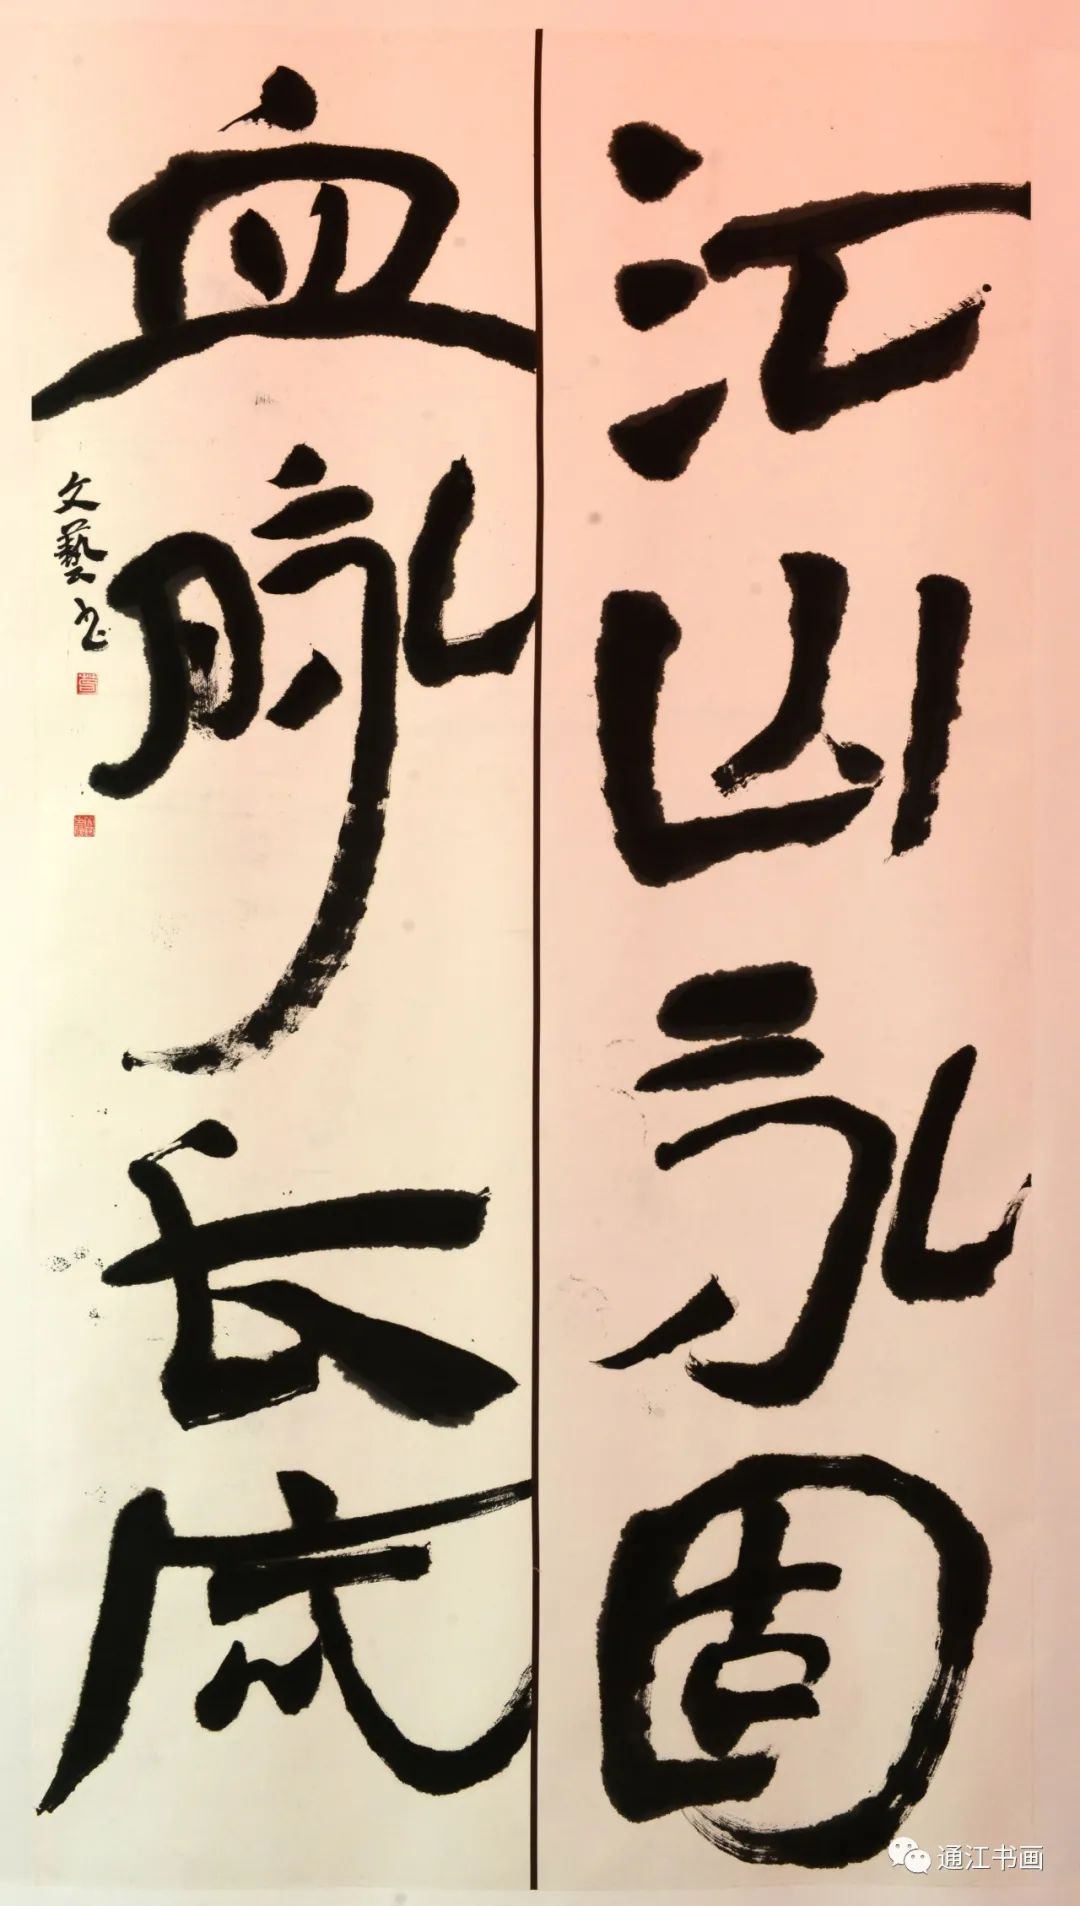 江山永固
血脉长
文藝书
通江书画